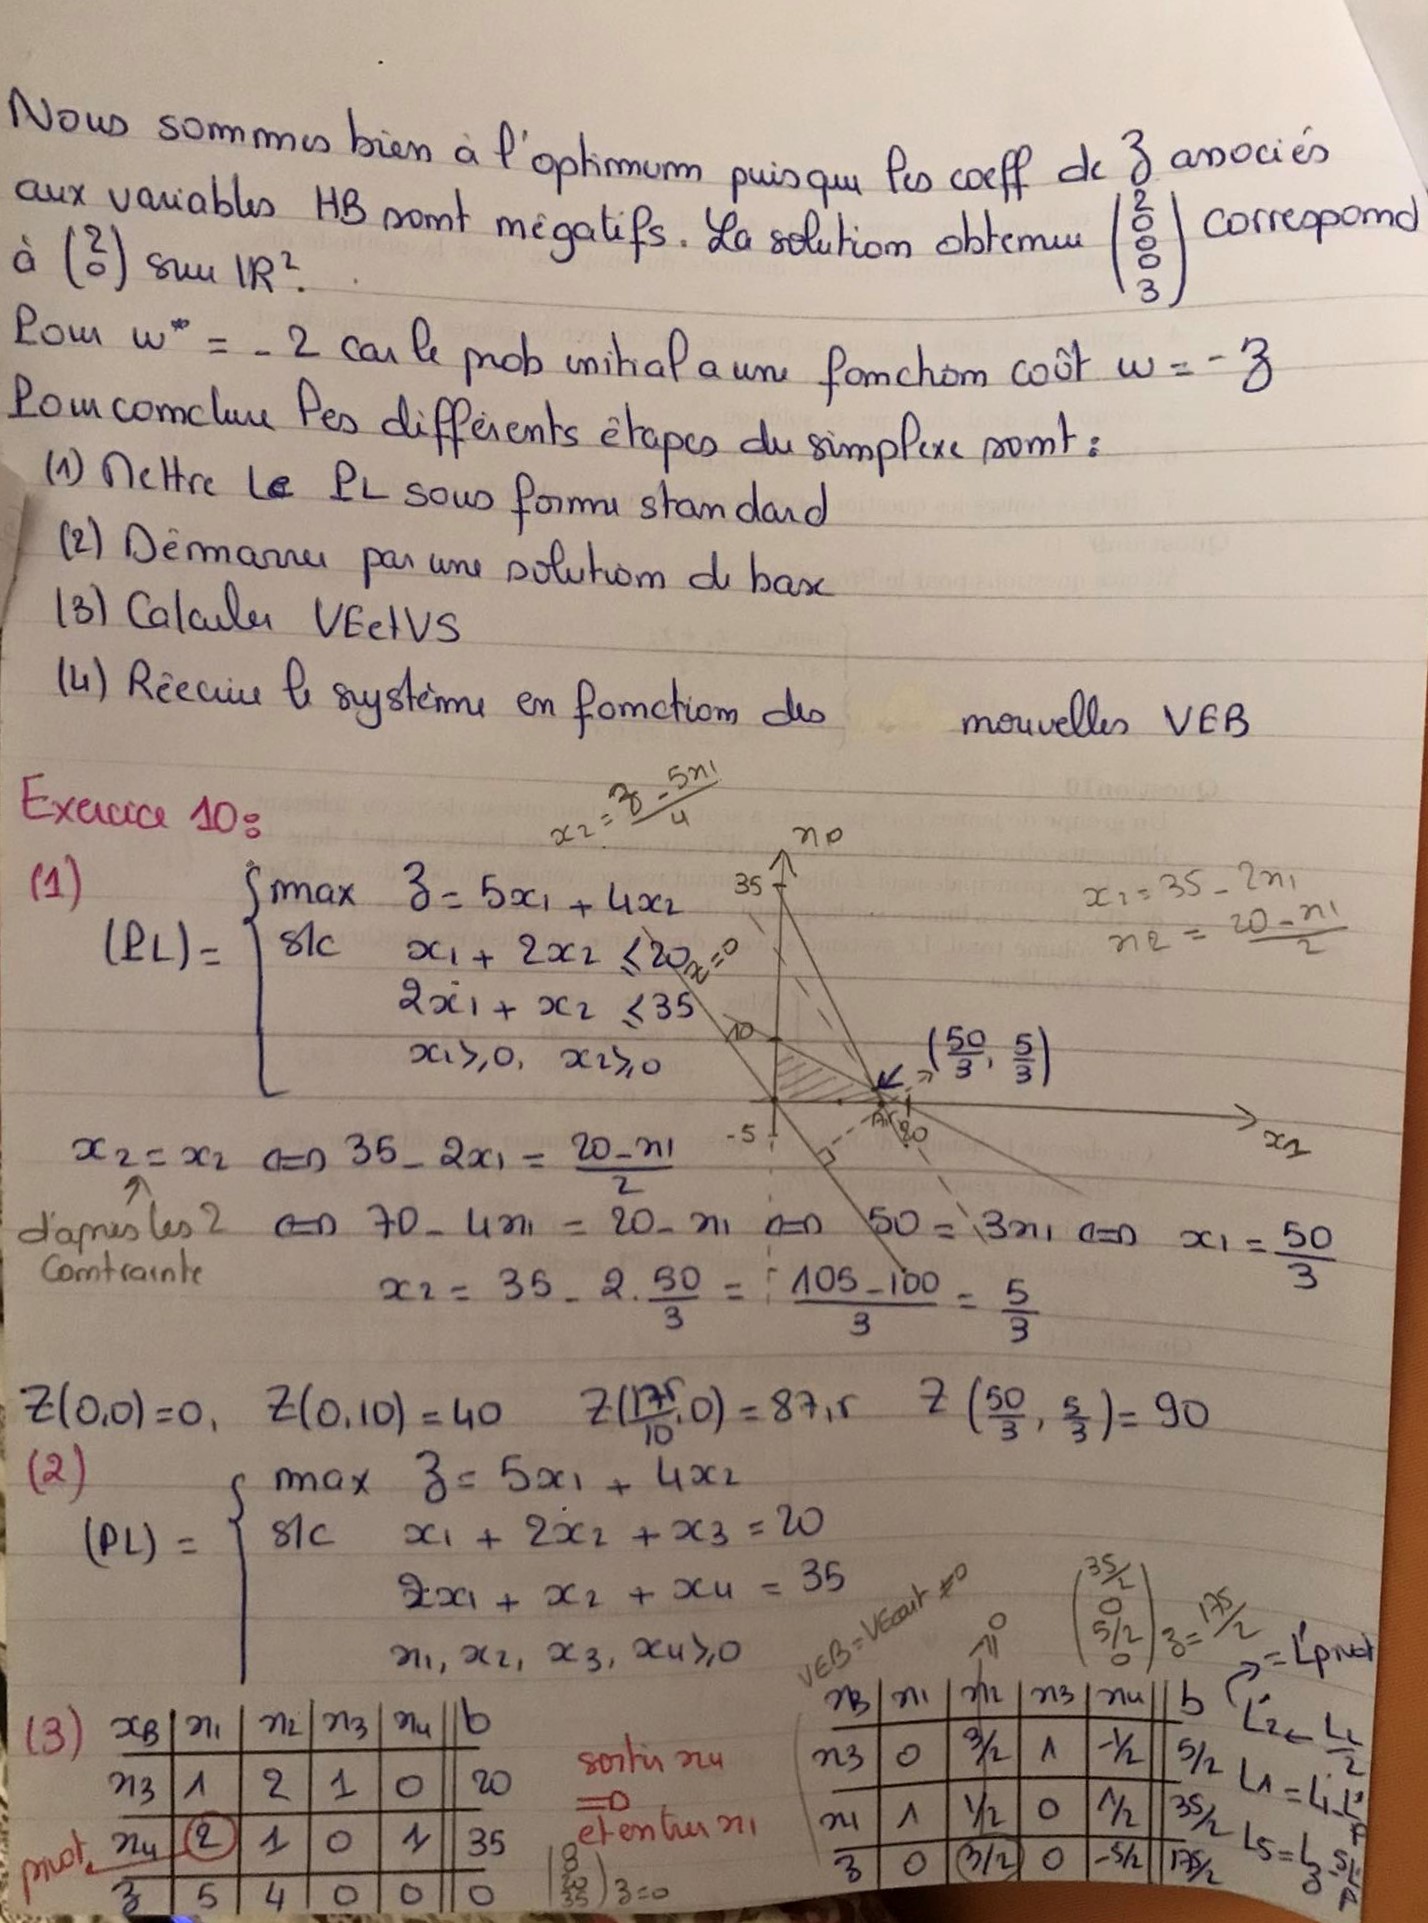 Nous sommes bien à l'optimum puisque les coeff de z associés
aux variables HB sont négatifs. La solution obtenue (2 0 0 0 3) correspond
à (2 0) sur IR².
Pour w* = -2 car le prob initial a une fonction coût w = -z
Pour conclure les différents étapes du simplexe sont :
(1) Mettre le PL sous forme standard
(2) Démarrer par une solution de base
(3) Calculer VE et VS
(4) Réécrire le système en fonction des nouvelles VEB
Exercice 10 :
x2 = z - 5x1 / 4
(1)
(PL) = { max z = 5x1 + 4x2
s/c x1 + 2x2 ≤ 20
2x1 + x2 ≤ 35
x1 ≥, 0, x2 ≥, 0
35
10
z=0
-5
20
x1
(50/3, 5/3)
x2 = 35 - 2x1
x2 = 20 - x1 / 2
x2 = x2 <=> 35 - 2x1 = 20 - x1 / 2
d'après les 2
contrainte
<=> 70 - 4x1 = 20 - x1 <=> 50 = 3x1 <=> x1 = 50/3
x2 = 35 - 2. 50/3 = 105 - 100 / 3 = 5/3
Z(0,0) = 0, Z(0,10) = 40 Z(175/10, 0) = 87,5 Z(50/3, 5/3) = 90
(2)
(PL) = { max z = 5x1 + 4x2
s/c x1 + 2x2 + x3 = 20
2x1 + x2 + x4 = 35
x1, x2, x3, x4 ≥, 0
(3)
xB | x1 | x2 | x3 | x4 || b
x3 | 1 | 2 | 1 | 0 || 20
x4 | 2 | 1 | 0 | 1 || 35
z | 5 | 4 | 0 | 0 || 0
pivot
sortir x4
=0
et entrer x1
(0 0 20 35) z=0
(35/2 0 5/2 0) z = 175/2
xB | x1 | x2 | x3 | x4 || b
x3 | 0 | 3/2 | 1 | -1/2 || 5/2
x1 | 1 | 1/2 | 0 | 1/2 || 35/2
z | 0 | (3/2) | 0 | -5/2 || 175/2
= L'pivot
L'2 ← L2 / 2